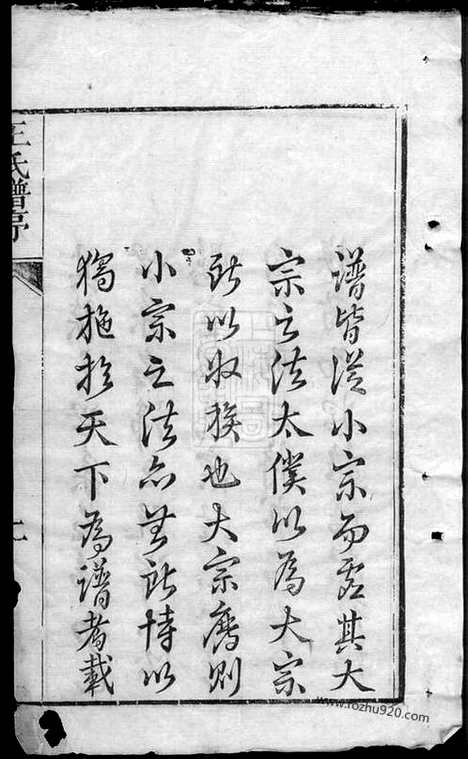 譜皆從小宗而虛其大
宗之法太僕以為大宗
所以收族也大宗廢則
小宗之法亦無所恃以
獨施於天下為譜者載
王氏譜序
www.rozhu920.com